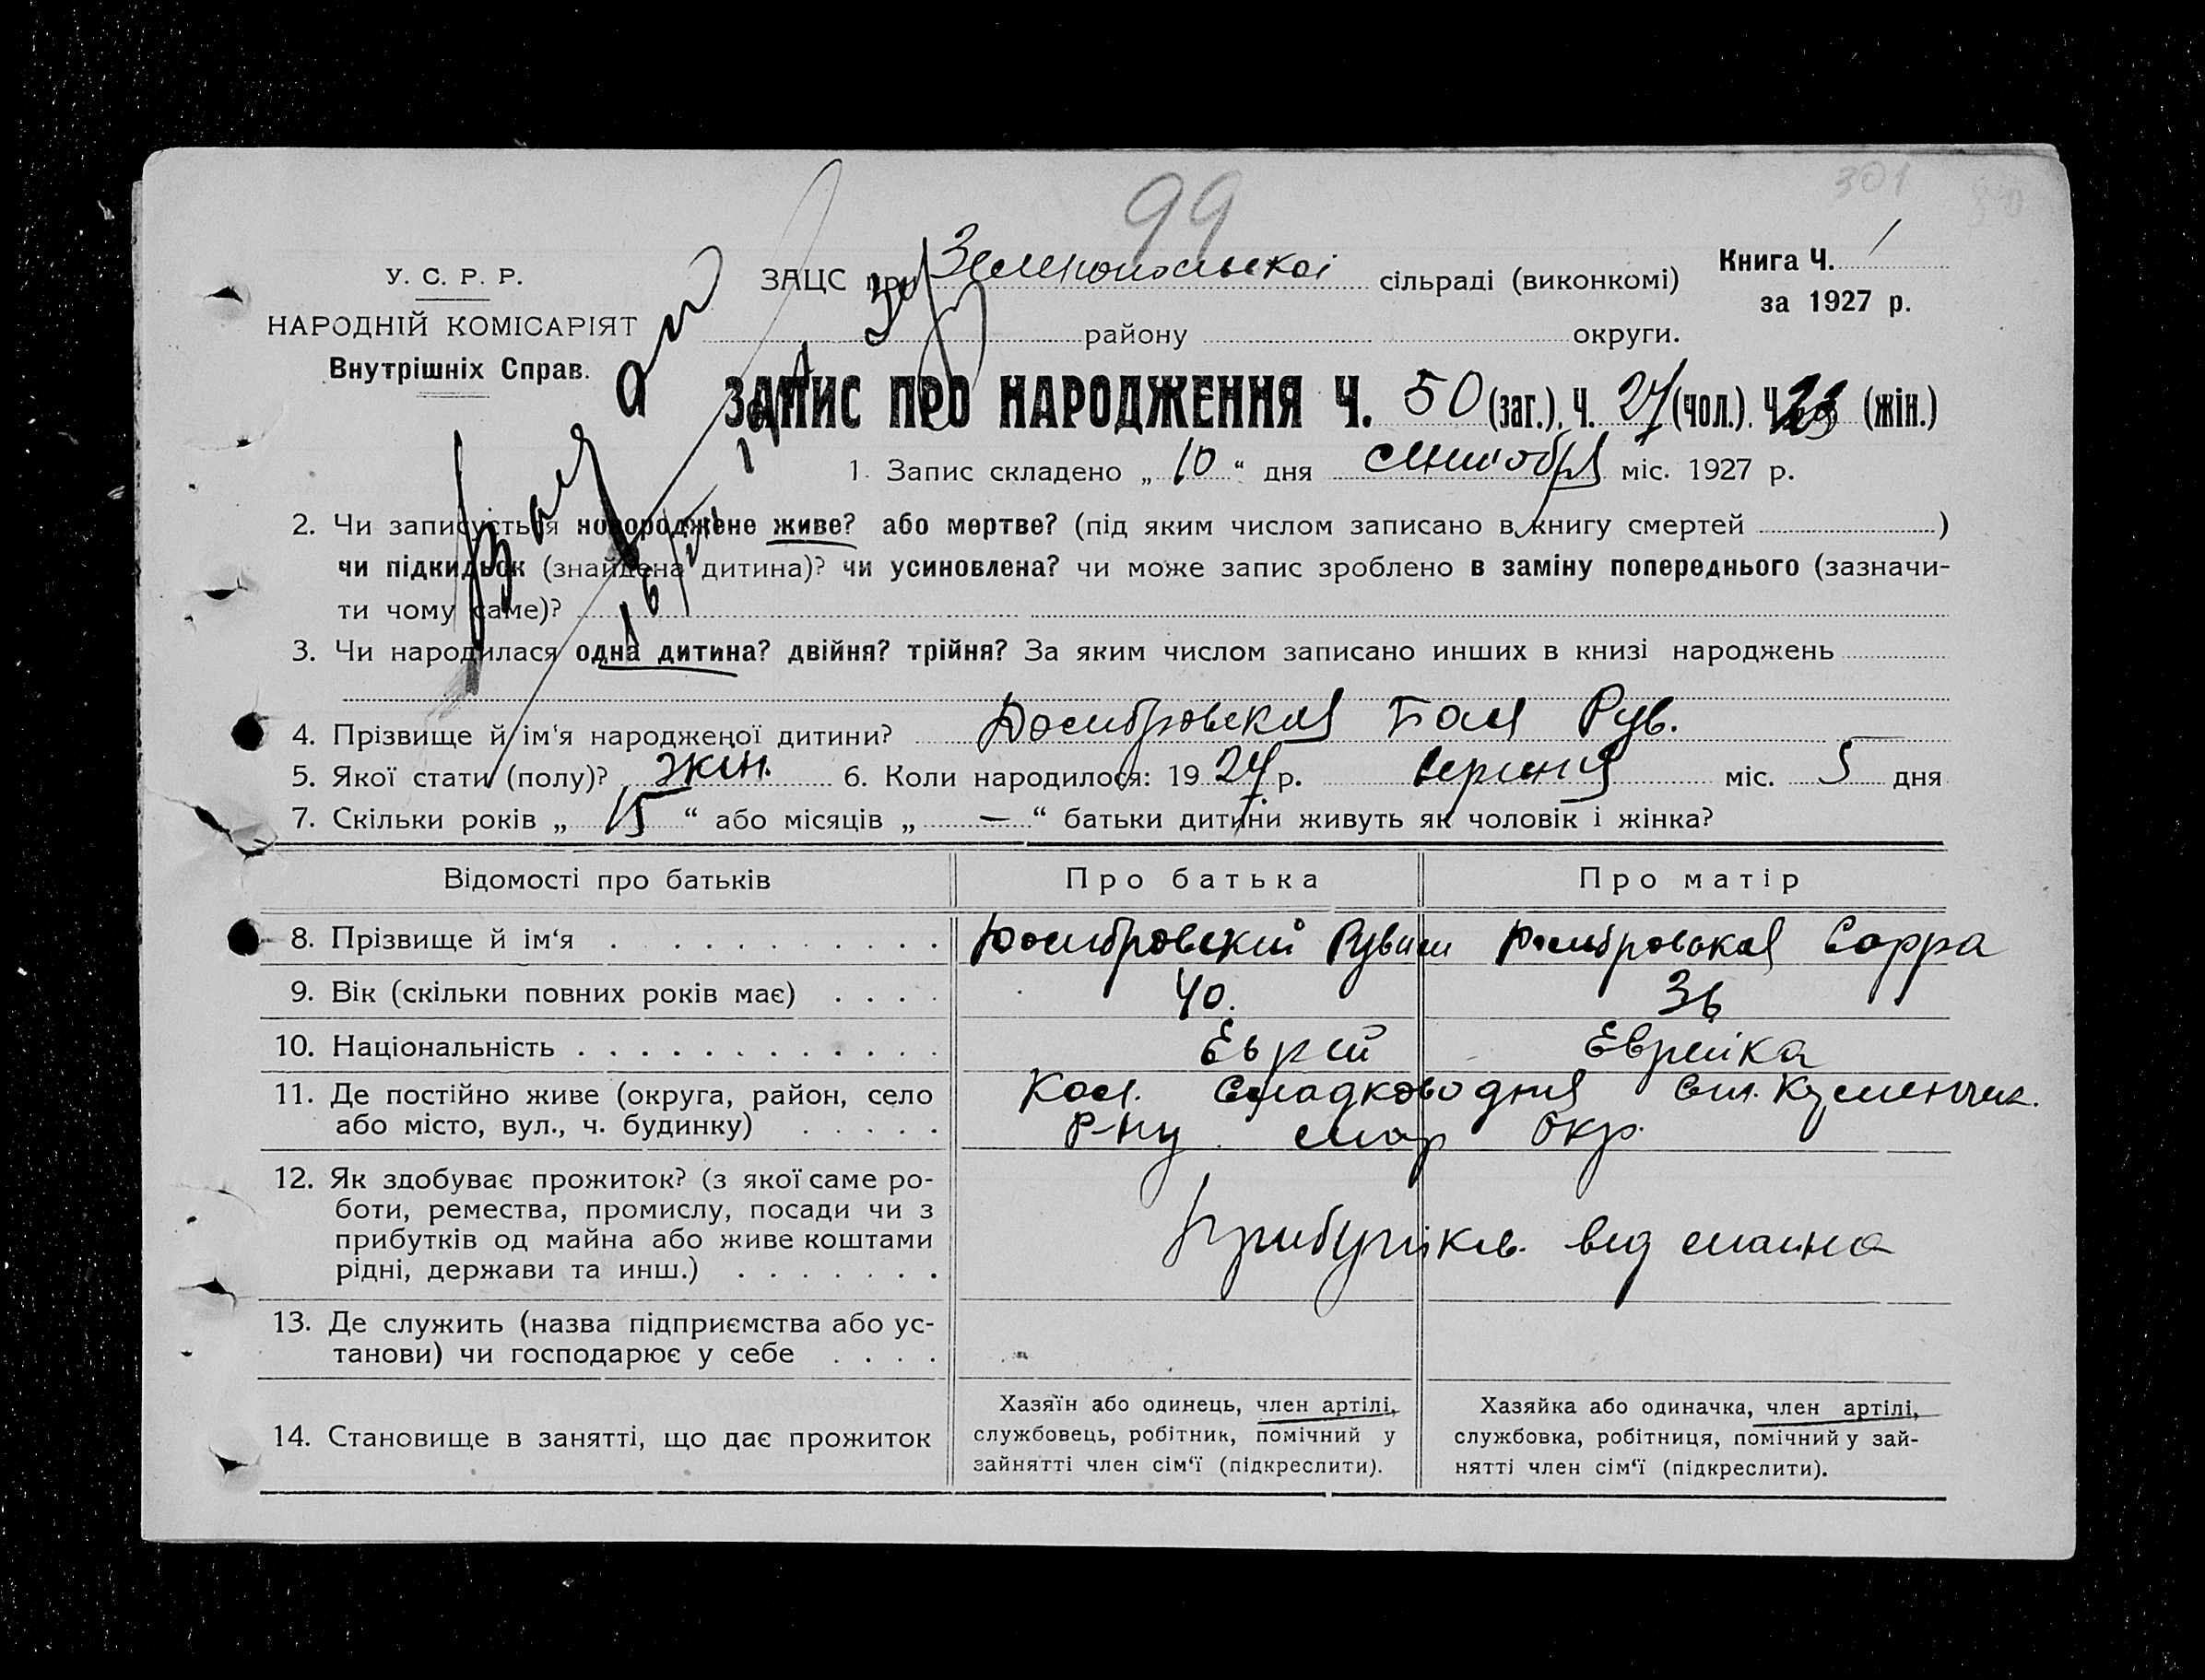 99
301
У. С. Р. Р.
НАРОДНІЙ КОМІСАРІЯТ
Внутрішніх Справ.
ЗАЦС при Зеленопольскоі сільраді (виконкомі)
району округи.
Книга Ч. 1
за 1927 р.
ЗАПИС ПРО НАРОДЖЕННЯ Ч. 50 (заг.). Ч. 27 (чол.). Ч. 23 (жін.)
1. Запис складено „ 10 “ дня міс. 1927 р.
2. Чи записується новороджене живе? або мертве? (під яким числом записано в книгу смертей )
чи підкидьок (знайдена дитина)? чи усиновлена? чи може запис зроблено в заміну попереднього (зазначи-
ти чому саме)?
3. Чи народилася одна дитина? двійня? трійня? За яким числом записано инших в книзі народжень
4. Прізвище й ім‘я народженої дитини? Домбровская Рув.
5. Якої стати (полу)? жін. 6. Коли народилося: 19 27 р. серпня міс. 5 дня
7. Скільки років „ 15 “ або місяців „ — “ батьки дитини живуть як чоловік і жінка?
Відомості про батьків
Про батька
Про матір
8. Прізвище й ім‘я Домбровский Рувим Домбровская Сарра
9. Вік (скільки повних років має) 40. 36
10. Національність Еврей Еврейка
11. Де постійно живе (округа, район, село Кол. Сладководня
або місто, вул., ч. будинку) Р-ну мар окр.
12. Як здобуває прожиток? (з якої саме ро-
боти, ремества, промислу, посади чи з
прибутків од майна або живе коштами
рідні, держави та инш.)
від маина
13. Де служить (назва підприємства або ус-
танови) чи господарює у себе
14. Становище в занятті, що дає прожиток
Хазяїн або одинець, член артілі,
службовець, робітник, помічний у
зайнятті член сім‘ї (підкреслити).
Хазяйка або одиначка, член артілі,
службовка, робітниця, помічний у зай-
нятті член сім‘ї (підкреслити).